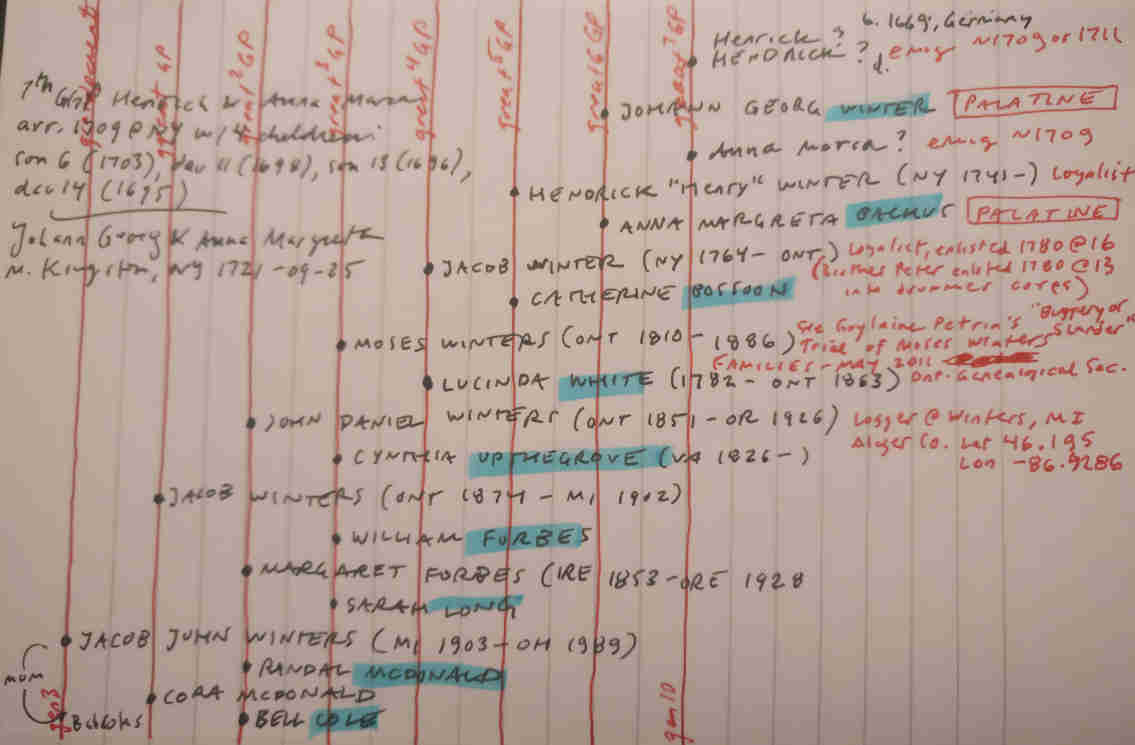 grandparent
great GP
great² GP
great³ GP
great⁴ GP
great⁵ GP
great⁶ GP
great⁷ GP
Henrick ? b. 1669, Germany
HENDRICK ? d. emig ~1709 or 1711
7th Hendrick & Anna Maria
arr. 1709 @ NY w/ 4 children:
son 6 (1703), dau 11 (1698), son 13 (1696),
dau 14 (1695)
JOHANN GEORG WINTER PALATINE
Anna Maria ? emig ~1709
HENDRICK "Henry" WINTER (NY 1741-) Loyalist
ANNA MARGRETA BACKUS PALATINE
Johann Georg & Anna Margreta
m. Kingston, NY 1721-09-25
JACOB WINTER (NY 1764- ONT) Loyalist, enlisted 1780 @ 16
(Brother Peter enlisted 1780 @ 13
into drummer corps)
CATHERINE BOSSOON
MOSES WINTERS (ONT 1810-1886) See Guylaine Petrin's "Buggery or Slander"
Trial of Moses Winters
FAMILIES - MAY 2011
LUCINDA WHITE (1782- ONT 1863) Ont. Genealogical Soc.
JOHN DANIEL WINTERS (ONT 1851- OR 1926) Logger @ Winters, MI
Alger Co. Lat 46.195
Lon -86.9286
CYNTHIA UPTHEGROVE (VA 1826-)
JACOB WINTERS (ONT 1874 - MI 1902)
WILLIAM FORBES
MARGARET FORBES (IRE 1853-ORE 1928
SARAH LONG
JACOB JOHN WINTERS (MI 1903-OH 1989)
mom
RANDAL MCDONALD
CORA MCDONALD
BELL COLE
gen3
gen10